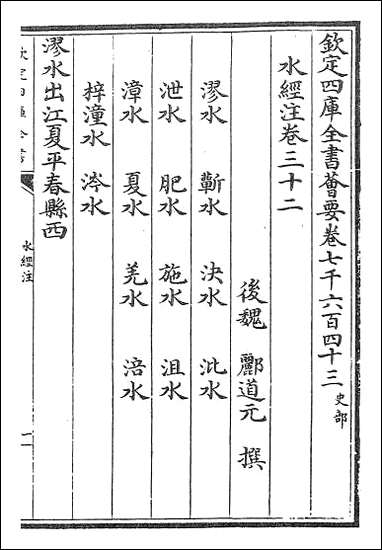 欽定四庫全書薈要卷七千六百四十三 史部
水經注卷三十二
後魏 酈道元 撰
漻水 蘄水 決水 沘水
泄水 肥水 施水 沮水
漳水 夏水 羌水 涪水
梓潼水 涔水
漻水出江夏平春縣西
水經注